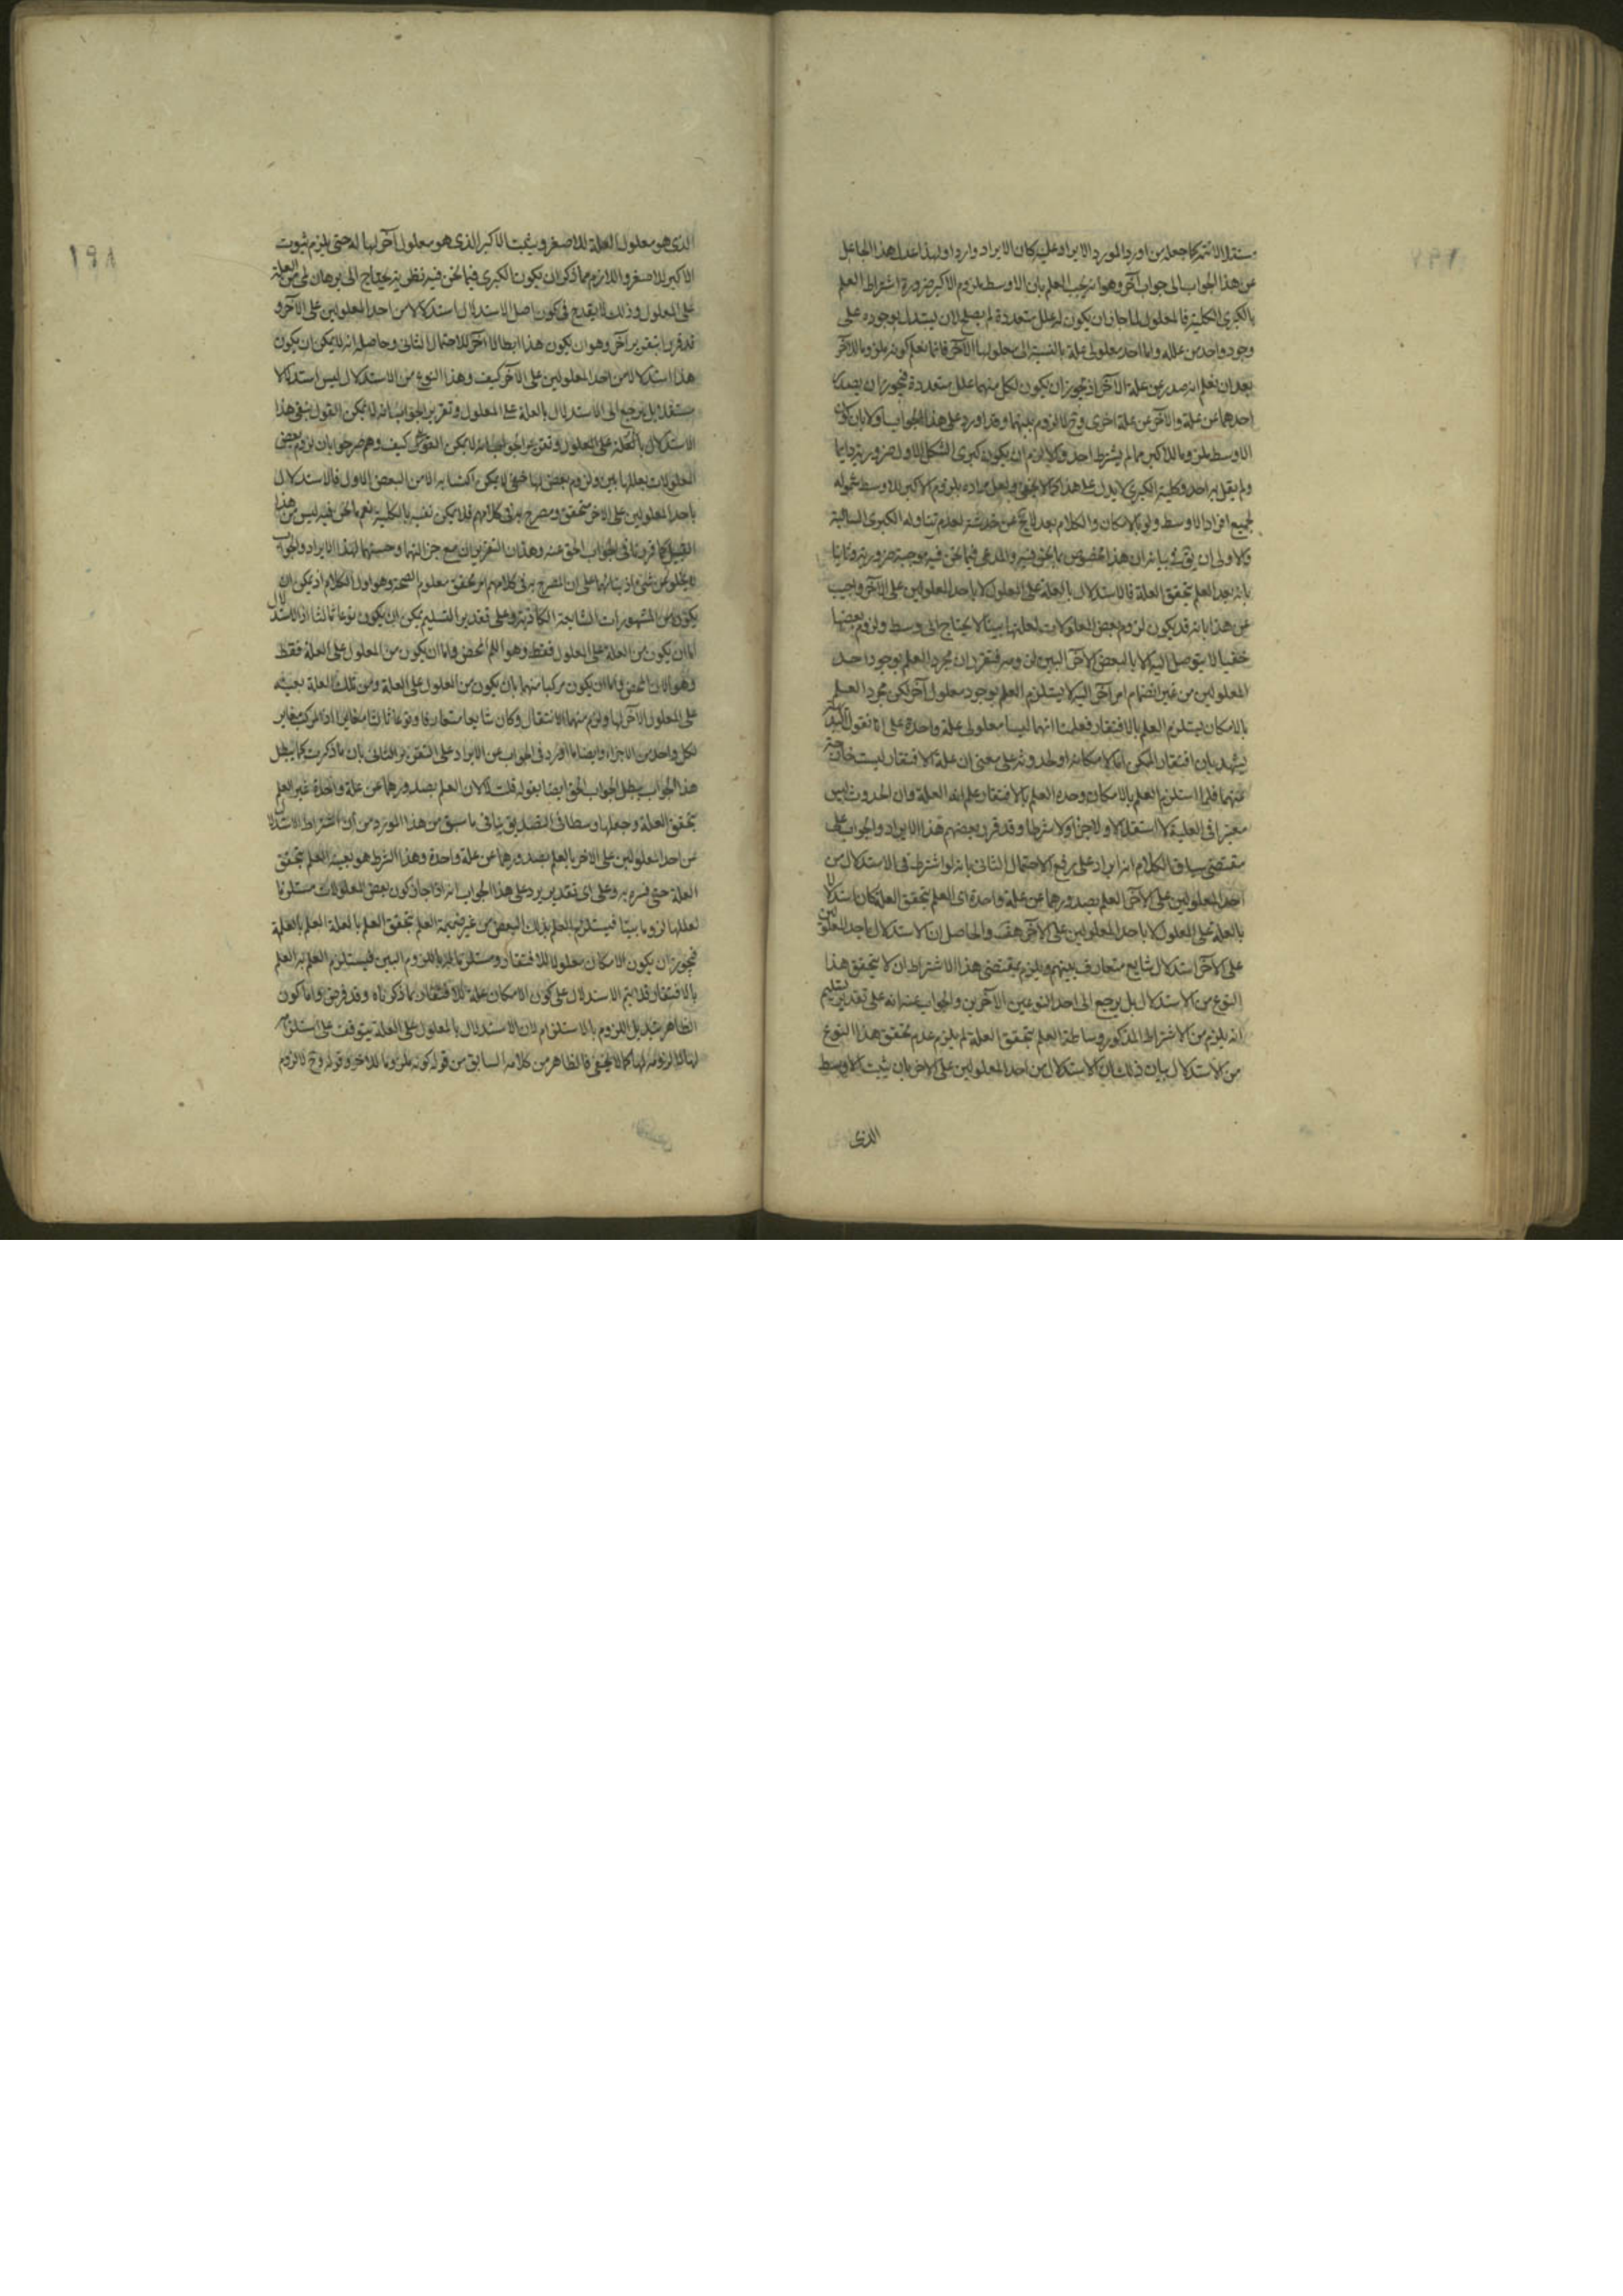 من هذا الجواب الى جواب آخر وهو انه يجب العلم بان الاوسط ملزوم الاكبر ضرورة اشتراط العلم
بالكبرى الكلية فالمعلول لما جاز ان يكون له علل متعددة لم يصلح لان يستدل بوجوده على
وجود واحد من علله واما احد معلولى علة بالنسبة الى معلولها الآخر فانما نعلم كونه ملزوما للآخر
بعد ان نعلم انه صدر عن علة الآخر اذ يجوز ان يكون لكل منهما علل متعددة فيجوز ان يصدر
احدهما عن علة والآخر عن علة اخرى وح لا لزوم بينهما وقد اورد على هذا الجواب اولا بان كون
الاوسط ملزوما للاكبر مما لم يشترط احد ولا لازم ان يكون كبرى الشكل الاول ضرورية دايما
ولم يقل به احد وكلية الكبرى لا يدل على هذا كما لا يخفى ولعل مراده بلزوم الاكبر للاوسط شموله
لجميع افراد الاوسط ولو بالامكان والكلام بعد لا يخ عن خدشة لعدم تناوله الكبرى السالبة
بانه بعد العلم بتحقق العلة فالاستدلال بالعلة على المعلول لا باحد المعلولين على الآخر واجيب
عن هذا بانه قد يكون لزوم بعض المعلولات لعلتها بينا لا يحتاج الى وسط ولزوم بعضها
خفيا لا يتوصل اليه الا بالبعض الآخر البين لزومه فتقرر ان مجرد العلم بوجود احد
المعلولين من غير انضمام امر آخر اليه لا يستلزم العلم بوجود معلول آخر لكن مجرد العلم
بالامكان يستلزم العلم بالافتقار فعلمنا انهما ليسا معلولى علة واحدة على انا نقول
يشهد بان افتقار الممكن اما لامكانه او لحدوثه على معنى ان علة الافتقار ليست خارجة
عنهما فلما استلزم العلم بالامكان وحده العلم بالافتقار علم انه العلة وان الحدوث ليس
معتبرا فى العلية لا استقلالا ولا جزءا ولا شرطا وقد قرر بعضهم هذا الايراد والجواب على
مقتضى سياق الكلام انه ايراد على رفع الاحتمال الثانى بانه لو اشترط فى الاستدلال من
احد المعلولين على الآخر العلم بصدورهما عن علة واحدة اى العلم بتحقق العلة كان استدلالا
بالعلة على المعلول لا باحد المعلولين على الآخر هف والحاصل ان الاستدلال باحد المعلولين
على الآخر استدلال شايع متعارف بينهم ويلزم بمقتضى هذا الاشتراط ان لا يتحقق هذا
النوع من الاستدلال بل يرجع الى احد النوعين الآخرين والجواب عنه انه على تقدير تسليم
انه يلزم من الاشتراط المذكور وساطة العلم بتحقق العلة لم يلزم عدم تحقق هذا النوع
من الاستدلال بيان ذلك ان الاستدلال من احد المعلولين على الآخر بان يثبت الاوسط
الذى
١٩٨
الذى هو معلول العلة للاصغر ويثبت الاكبر الذى هو معلول آخر لها له حتى يلزم ثبوت
الاكبر للاصغر واللازم مما ذكر ان يكون الكبرى فيما نحن فيه نظرية يحتاج الى برهان لمى من العلة
على المعلول وذلك لا يقدح فى كون اصل الاستدلال استدلالا من احد المعلولين على الآخر و
قد قرر بتقرير آخر وهو ان يكون هذا ابطالا آخر للاحتمال الثانى وحاصله انه لا يمكن ان يكون
هذا استدلالا من احد المعلولين على الآخر كيف وهذا النوع من الاستدلال ليس استدلالا
مستقلا بل يرجع الى الاستدلال بالعلة على المعلول وتقرير الجواب انه لا يمكن القول بنفى هذا
المعلولات بعللها بين ولزوم بعض لها خفى لا يمكن اكتسابه الا من البعض الاول فالاستدلال
باحد المعلولين على الآخر متحقق ومصرح به فى كلامهم فلا يمكن نفيه بالكلية نعم ما نحن فيه ليس من هذا
القبيل كما قررنا فى الجواب الحق عنه وهذان التقريران مع جزالتهما وحسنهما لهذا الايراد والجواب
لا يخلو عن شئ اذ بناؤهما على ان المصرح به فى كلامهم امر محقق معلوم الصحة وهو اول الكلام اذ يمكن ان
يكون من المشهورات الشايعة الكاذبة وعلى تقدير التسليم يمكن ان يكون نوعا ثالثا اذ الاستدلال
اما ان يكون من العلة على المعلول فقط وهو اللم المحض واما ان يكون من المعلول على العلة فقط
وهو الان المحض واما ان يكون مركبا منهما بان يكون من المعلول على العلة ومن تلك العلة بعينه
على المعلول الآخر لها ولزم منهما الانتقال وكان شايعا متعارفا ونوعا ثالثا مغايرا اذ المركب مغاير
لكل واحد من الاجزاء وايضا ما افرد فى الجواب عن الايراد على التقرير الثانى بان ما ذكرت كما يبطل
هذا الجواب يبطل الجواب الحق ايضا بقوله قلت لا لان العلم بصدورهما عن علة واحدة غير العلم
بتحقق العلة وجعلها وسطا فى التصديق ينافى ما سبق من هذا المورد من ان اشتراط الاستدلال
من احد المعلولين على الآخر بالعلم بصدورهما عن علة واحدة وهذا الشرط هو بعينه العلم بتحقق
العلة حتى فسره به وعلى اى تقدير يرد على هذا الجواب انه اذا جاز كون بعض المعلولات مستلزما
لعللها لزوما بينا فيستلزم العلم بذلك البعض من غير ضميمة العلم بتحقق العلم بالعلة العلم بالعلة
فيجوز ان يكون الامكان معلولا للافتقار ومستلزما له باللزوم البين فيستلزم العلم به العلم
بالافتقار فلا يتم الاستدلال على كون الامكان علة للافتقار بما ذكرناه وقد فرض واما كون
الظاهر تبديل اللزوم بالاستلزام لان الاستدلال بالمعلول على العلة يتوقف على استلزامه
لها لا لزومه لها كما لا يخفى فالظاهر من كلامه السابق من قوله كونه ملزوما للآخر وقوله وح لا لزوم